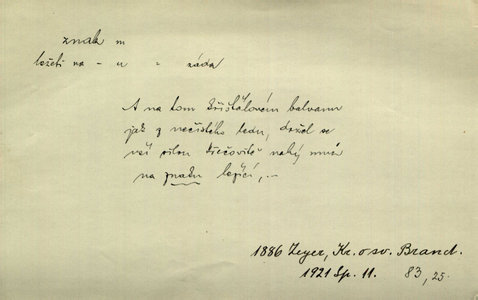 znak m
ležeti na - u = záda
A na tom křišťálovém balvanu
jak z nečistého ledu, držel se
vší silou křečovitě nahý muž
na znaku ležící, ..
1886 Zeyer, Kr. o sv. Brand.
1921 Sp. 11. 83, 25.